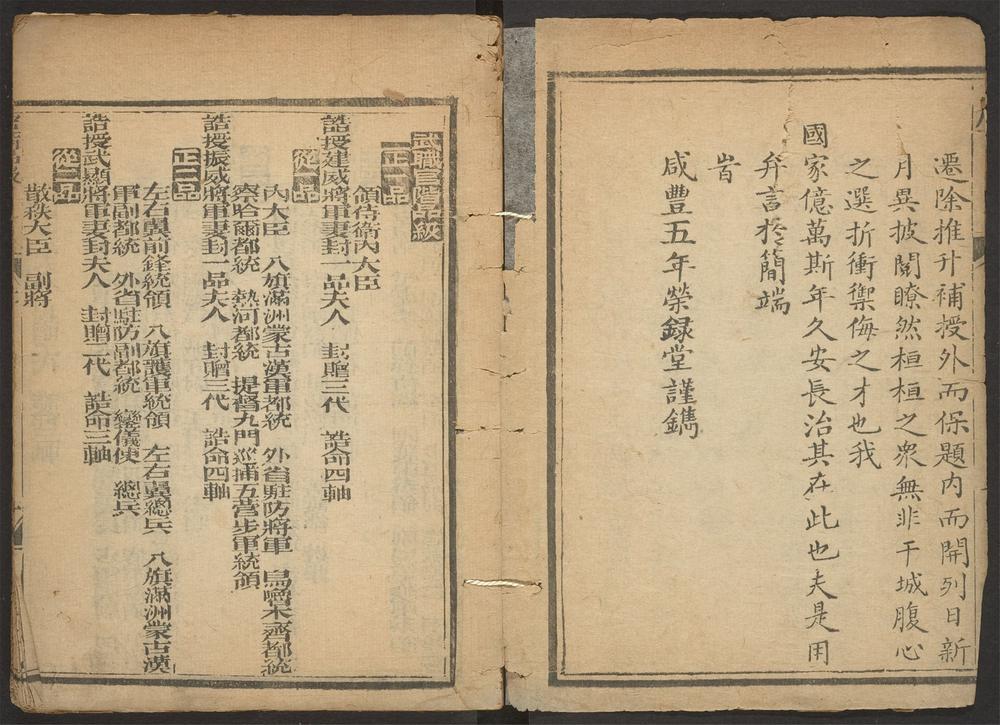 遷除推升補授外而保題內而開列日新
月異披閱瞭然桓桓之衆無非干城腹心
之選折衝禦侮之才也我
國家億萬斯年久安長治其在此也夫是用
弁言於簡端
旹
咸豐五年榮録堂謹鐫
武職官階品級
正一品
領侍衛內大臣
誥授建威將軍妻封一品夫人 封贈三代 誥命四軸
從一品
內大臣 八旗滿洲蒙古漢軍都統 外省駐防將軍 烏嚕木齊都統
察哈爾都統 熱河都統 提督九門巡捕五營步軍統領
誥授振威將軍妻封一品夫人 封贈三代 誥命四軸
正二品
左右翼前鋒統領 八旗護軍統領 左右翼總兵 八旗滿洲蒙古漢
軍副都統 外省駐防副都統 鑾儀使 總兵
誥授武顯將軍妻封夫人 封贈二代 誥命三軸
從二品
散秩大臣 副將